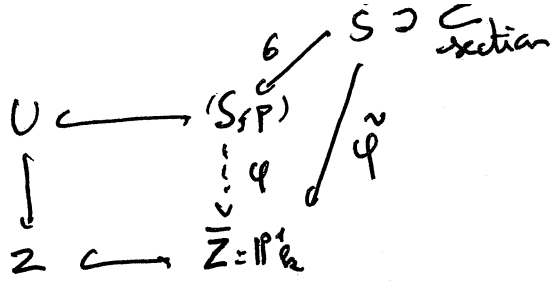 S̃ ⊃ C
section
σ
U (S, p)
φ φ̃
Z Z̄ = ℙ¹ₖ